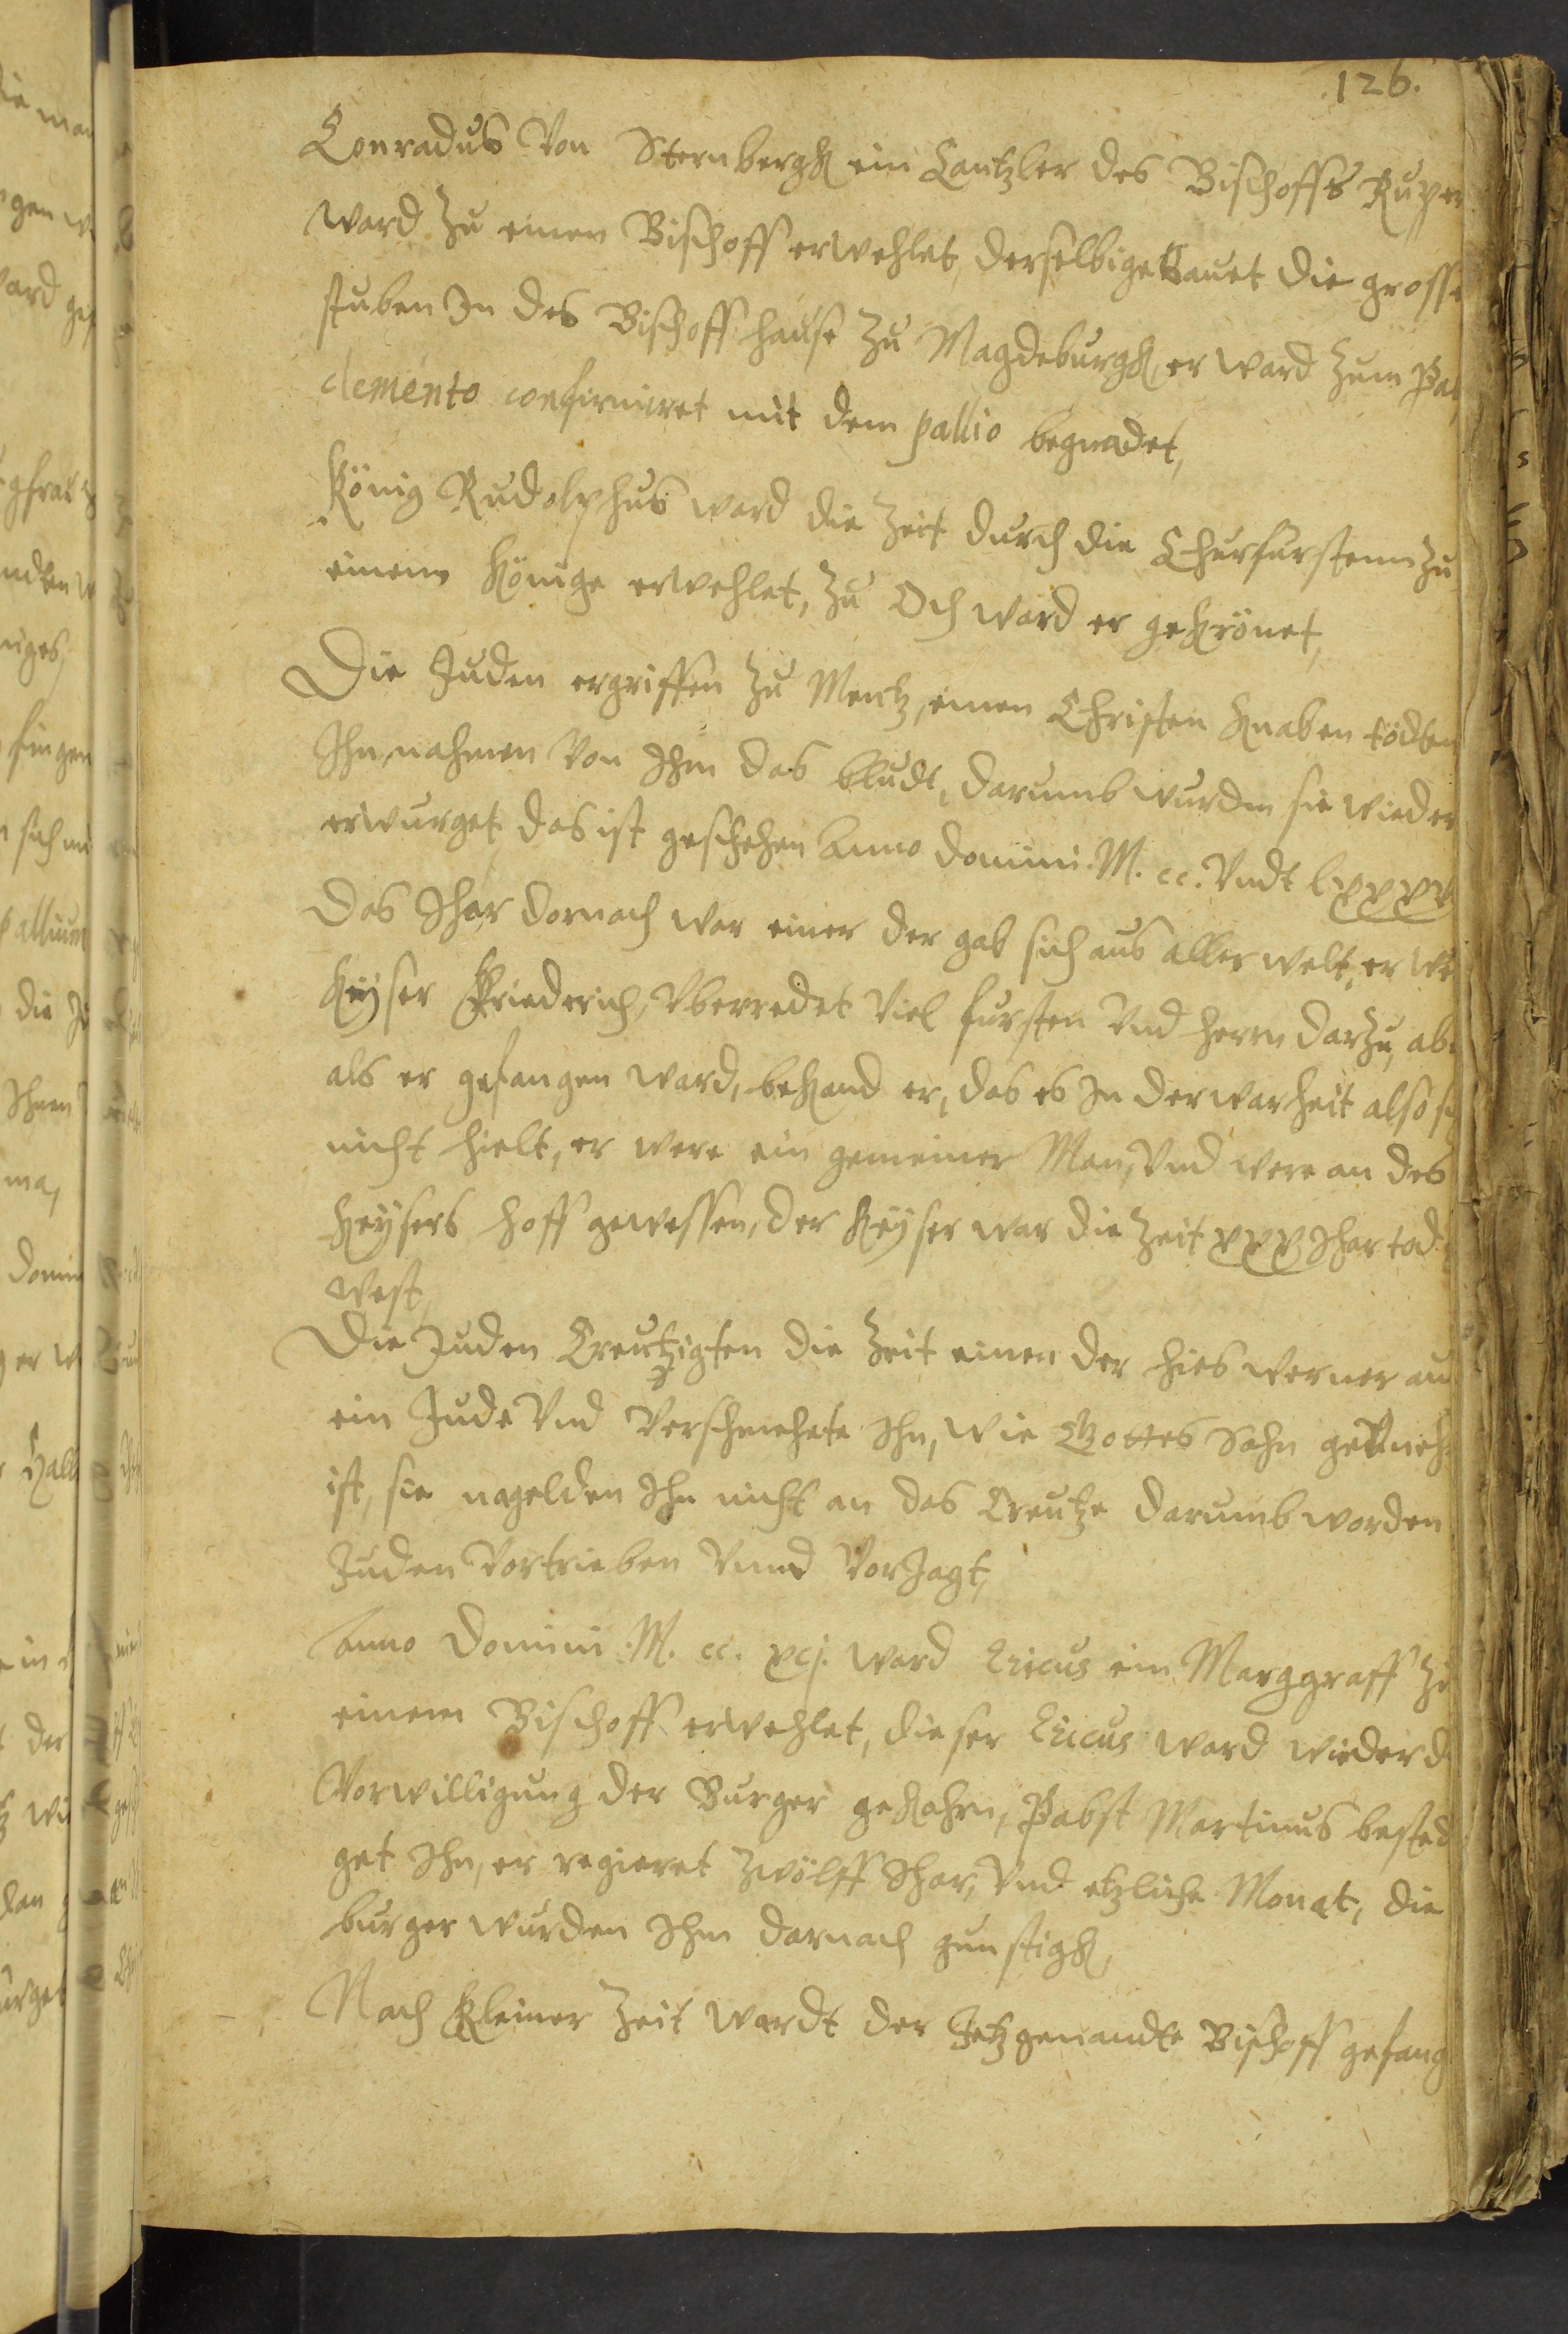 126.
Conradus Von Sternbergk ein Cantzler des Bischoffs Ruper
ward zu einen Bischoff erwehlet, derselbige bauet die grosse
stuben In des Bischoff hause zu Magdeburgk, er ward zum Pab
clemento confirmiret mit dem pallio begnadet,
König Rudolphus ward die Zeit durch die Churfürstenn zu
einem Könige erwehlet, zu Och ward er gekrönet,
Die Juden ergriffen zu Mentz, einen Christen knaben tödten
Ihn, nahmen Von Ihm das bludt, darumb wurden sie wieder
erwurget das ist geschehen Anno domini M. cc. Vndt lxxxv
Das Ihar dornach war einer der gab sich aus aller welt, er we
Keÿser Friederich, Vberredet Viel fursten Vnd herrn darzu, abe
als er gefangen ward, bekand er, das es In der warheit also si
nicht hielt, er were ein gemeiner Man, Vnd were an des
Keÿsers hoff gewessen, der Keÿser war die Zeit xxx Ihar tod
west,
Die Juden Creutzigten die Zeit einen der hies werner au
ein Jude Vnd Verschmehete Ihn, wie Gottes Sohn
ist, sie nagelden Ihn nicht an das Creutze darumb worden
Juden Vortrieben Vnnd VorJagt,
Anno Domini M. cc. xcj. ward Ericus ein Marggraff zu
einem Bischoff erwehlet, dieser Ericus ward wieder d
Vorwilligung der Burger gekohrn, Pabst Martinus bested
get Ihn, er regieret zwölff Ihar, Vnd etzliche Monat, die
burger wurden Ihm darnach gunstigk,
Nach kleiner Zeit wardt der Jetzgenandte Bischoff gefang